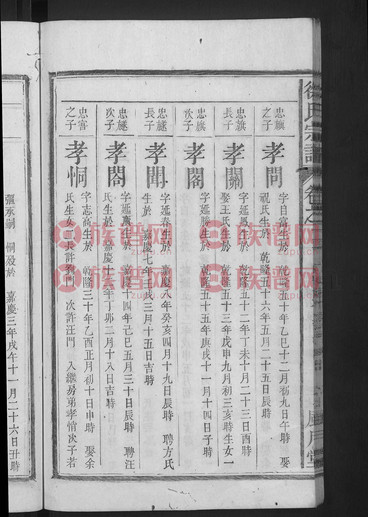 徐氏宗譜
忠旗之子
孝問
字日富生於 乾隆五十年乙巳十二月初九日午時 娶
祝氏生於 乾隆五十六年五月二十五日辰時
忠旗長子
孝關
字延 生於 乾隆五十二年丁未十月二十三日酉時
娶王氏生於 乾隆五十三年戊申九月初三亥時生女一
忠旗次子
孝閣
字延 生於 乾隆五十五年庚戌十一月十四日子時
忠鐩長子
孝開
字延 生於 嘉慶八年癸亥四月十九日辰時 聘方氏
生於 嘉慶七年壬戌三月十五日吉時
忠鐩次子
孝閤
字延慶生於 嘉慶十四年己巳五月三十日辰時 聘汪
氏生於 嘉慶十二年丁卯二月十八日吉時
忠
之子
孝恫
字志高生於 乾隆三十年乙酉正月初十日申時 娶余
氏生女二長許劉門 次許汪門 入繼房弟孝愔次子若
承嗣 恫歿於 嘉慶三年戊午十一月二十六日丑時
族譜网